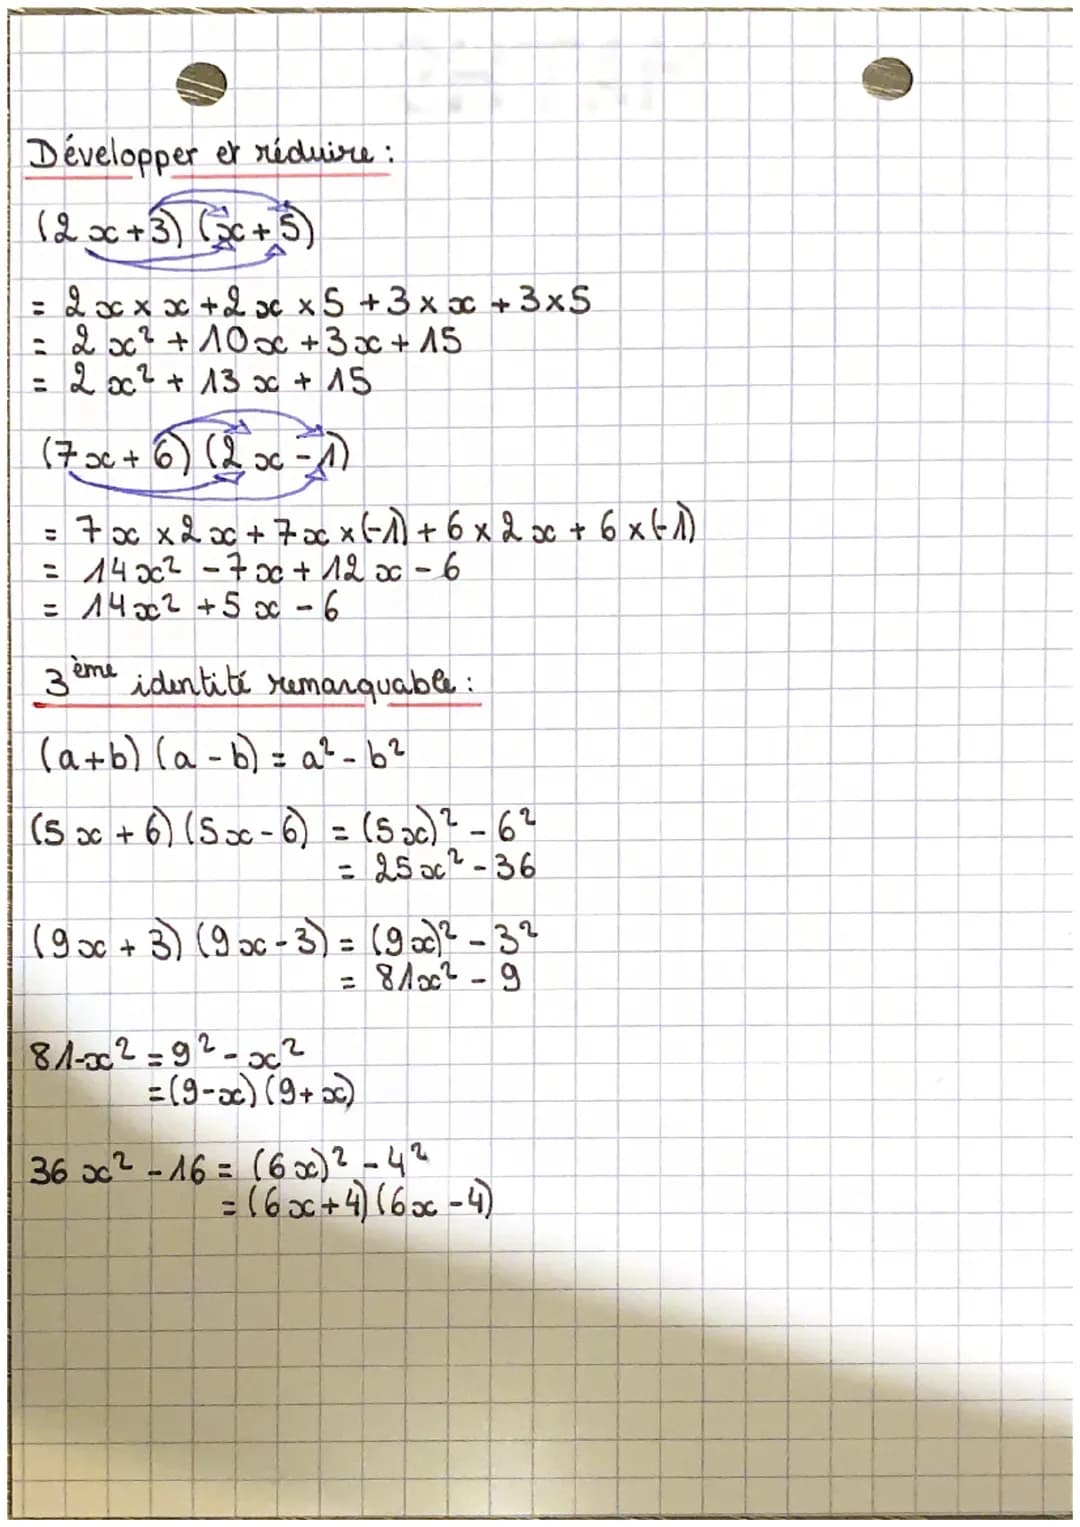 Développer et réduire :
(2x+3) (x+5)
= 2x × x + 2x × 5 + 3 × x + 3×5
= 2x² + 10x + 3x + 15
= 2x² + 13x + 15
(7x+6) (2x-1)
= 7x × 2x + 7x × (-1) + 6 × 2x + 6 × (-1)
= 14x² - 7x + 12x - 6
= 14x² + 5x - 6
3ème identité remarquable :
(a+b) (a-b) = a² - b²
(5x + 6) (5x - 6) = (5x)² - 6²
= 25x² - 36
(9x + 3) (9x - 3) = (9x)² - 3²
= 81x² - 9
81-x² = 9² - x²
=(9-x) (9+x)
36x² - 16 = (6x)² - 4²
= (6x+4) (6x-4)